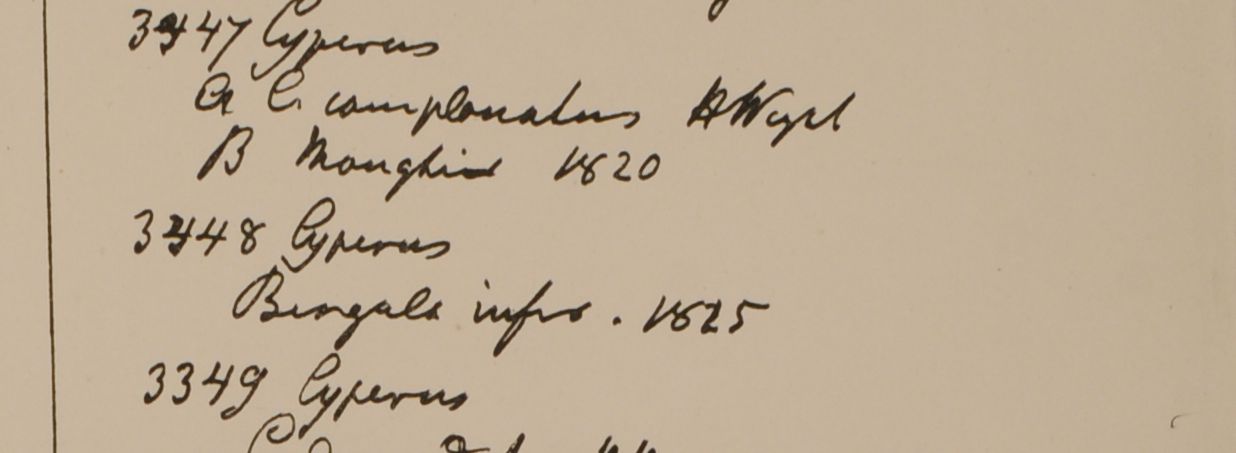 3347 Cyperus
a C. complanatus HWight
B Monghir 1820
3348 Cyperus
Bengala infra. 1825
3349 Cyperus